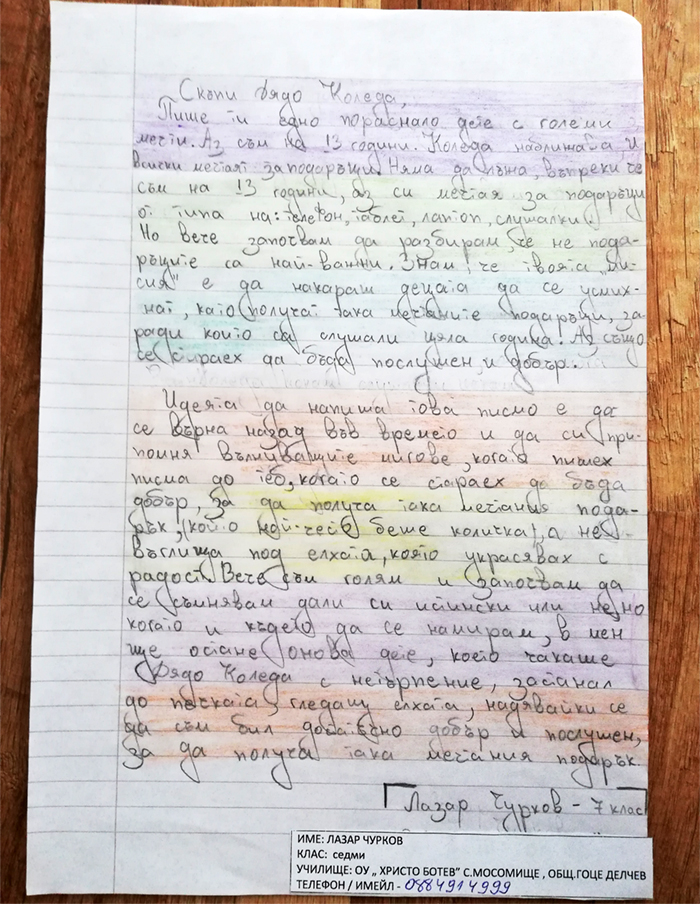 Скъпи Дядо Коледа,
Пише ти едно пораснало дете с големи
мечти. Аз съм на 13 години. Коледа наближава, и
всички мечтаят за подаръци. Няма да лъжа, въпреки че
съм на 13 години, аз си мечтая за подаръци
от типа на: телефон, таблет, лаптоп, слушалки.
Но вече започвам да разбирам, че не пода-
ръците са най-важни. Знам, че твоята „ми-
сия" е да накараш децата да се усмих-
нат, като получат така мечтаните подаръци, за-
ради които са слушали цяла година. Аз също
се стараех да бъда послушен, и добър.
Идеята да напиша това писмо е да
се върна назад във времето и да си при-
помня вълнуващите мигове, когато пишех
писма до теб, когато се стараех да бъда
добър, за да получа така мечтания пода-
рък, (който най-често беше количка), а не
въглища под елхата, която украсявах с
радост. Вече съм голям и започвам да
се съмнявам дали си истински или не, но
когато и където да се намирам, в мен
ще остане онова дете, което чакаше
Дядо Коледа с нетърпение, застанал
до печката, гледащ елхата, надявайки се
да съм бил достатъчно добър и послушен,
за да получа така мечтания подарък
Лазар Чурков - 7 клас
ИМЕ: ЛАЗАР ЧУРКОВ
КЛАС: седми
УЧИЛИЩЕ: ОУ „ ХРИСТО БОТЕВ" С.МОСОМИЩЕ , ОБЩ.ГОЦЕ ДЕЛЧЕВ
ТЕЛЕФОН / ИМЕЙЛ - 0884914999